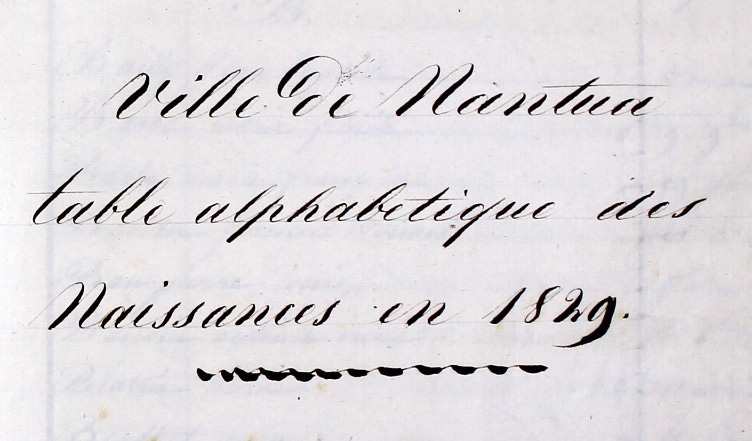 Ville de Nantua
table alphabetique des
Naissances en 1829.